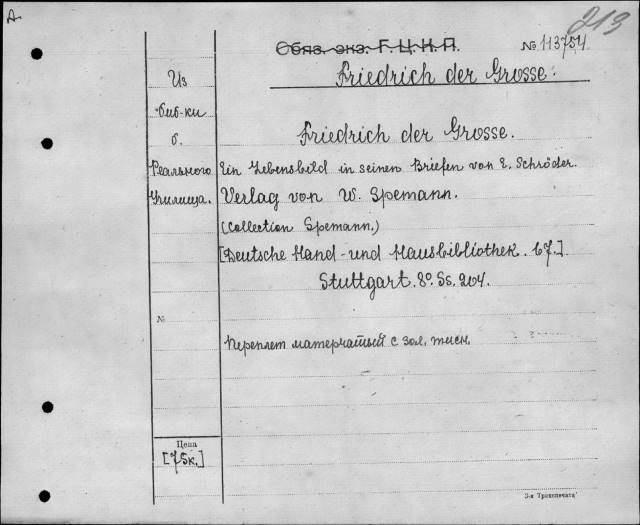 А.
213
Обяз. экз. Г. Ц. К. П.
№ 113754
Friedrich der Grosse:
Из
биб-ки
б.
Реального
Училища.
Friedrich der Grosse.
Ein Lebensbild in seinen Briefen von E. Schröder.
Verlag von W. Spemann.
(Collection Spemann.)
[Deutsche Hand- und Hausbibliothek. 67.]
Stuttgart. 8º. Ss. 204.
№
Переплет матерчатый с зол. тисн.
Цена
[75к.]
3-я Транспечать